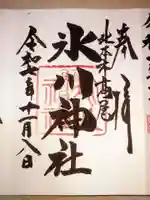 奉拝
北本市高尾
氷川神社
令和二年十一月八日